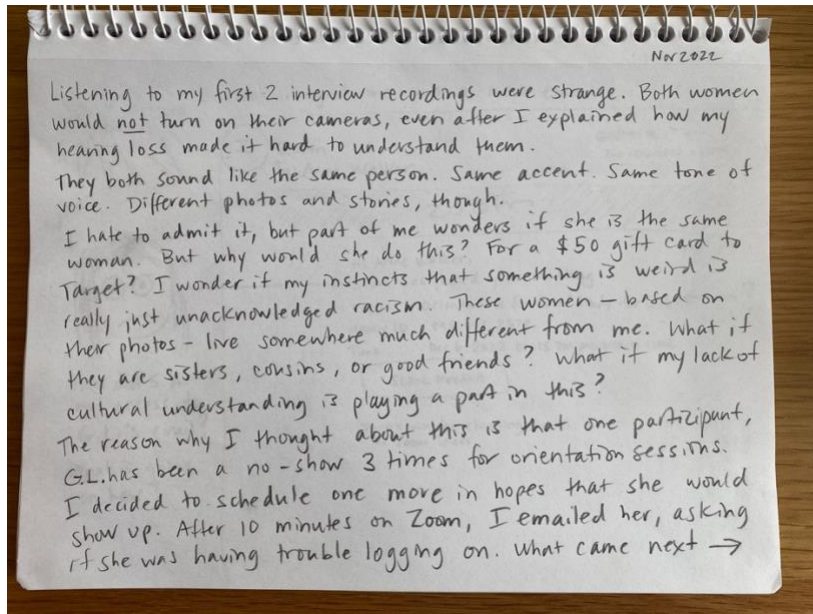 Nov 2022
Listening to my first 2 interview recordings were strange. Both women
would not turn on their cameras, even after I explained how my
hearing loss made it hard to understand them.
They both sound like the same person. Same accent. Same tone of
voice. Different photos and stories, though.
I hate to admit it, but part of me wonders if she is the same
woman. But why would she do this? For a $50 gift card to
Target? I wonder if my instincts that something is weird is
really just unacknowledged racism. These women - based on
their photos - live somewhere much different from me. What if
they are sisters, cousins, or good friends? What if my lack of
cultural understanding is playing a part in this?
The reason why I thought about this is that one participant,
G.L. has been a no-show 3 times for orientation sessions.
I decided to schedule one more in hopes that she would
show up. After 10 minutes on Zoom, I emailed her, asking
if she was having trouble logging on. What came next →